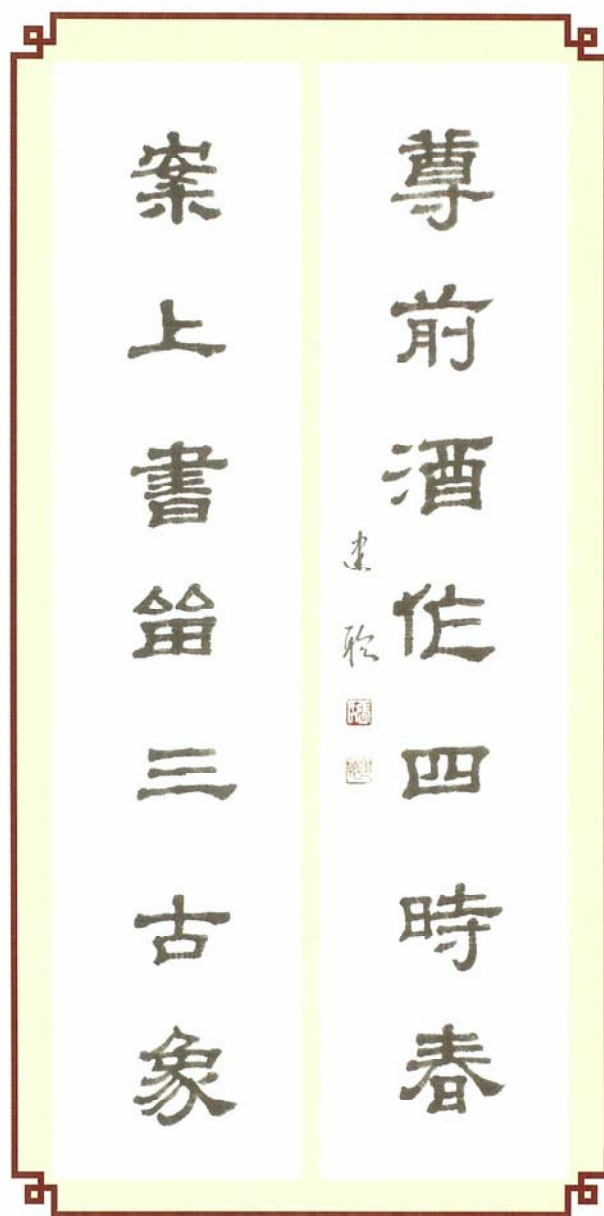 尊前酒作四時春
案上書留三古象